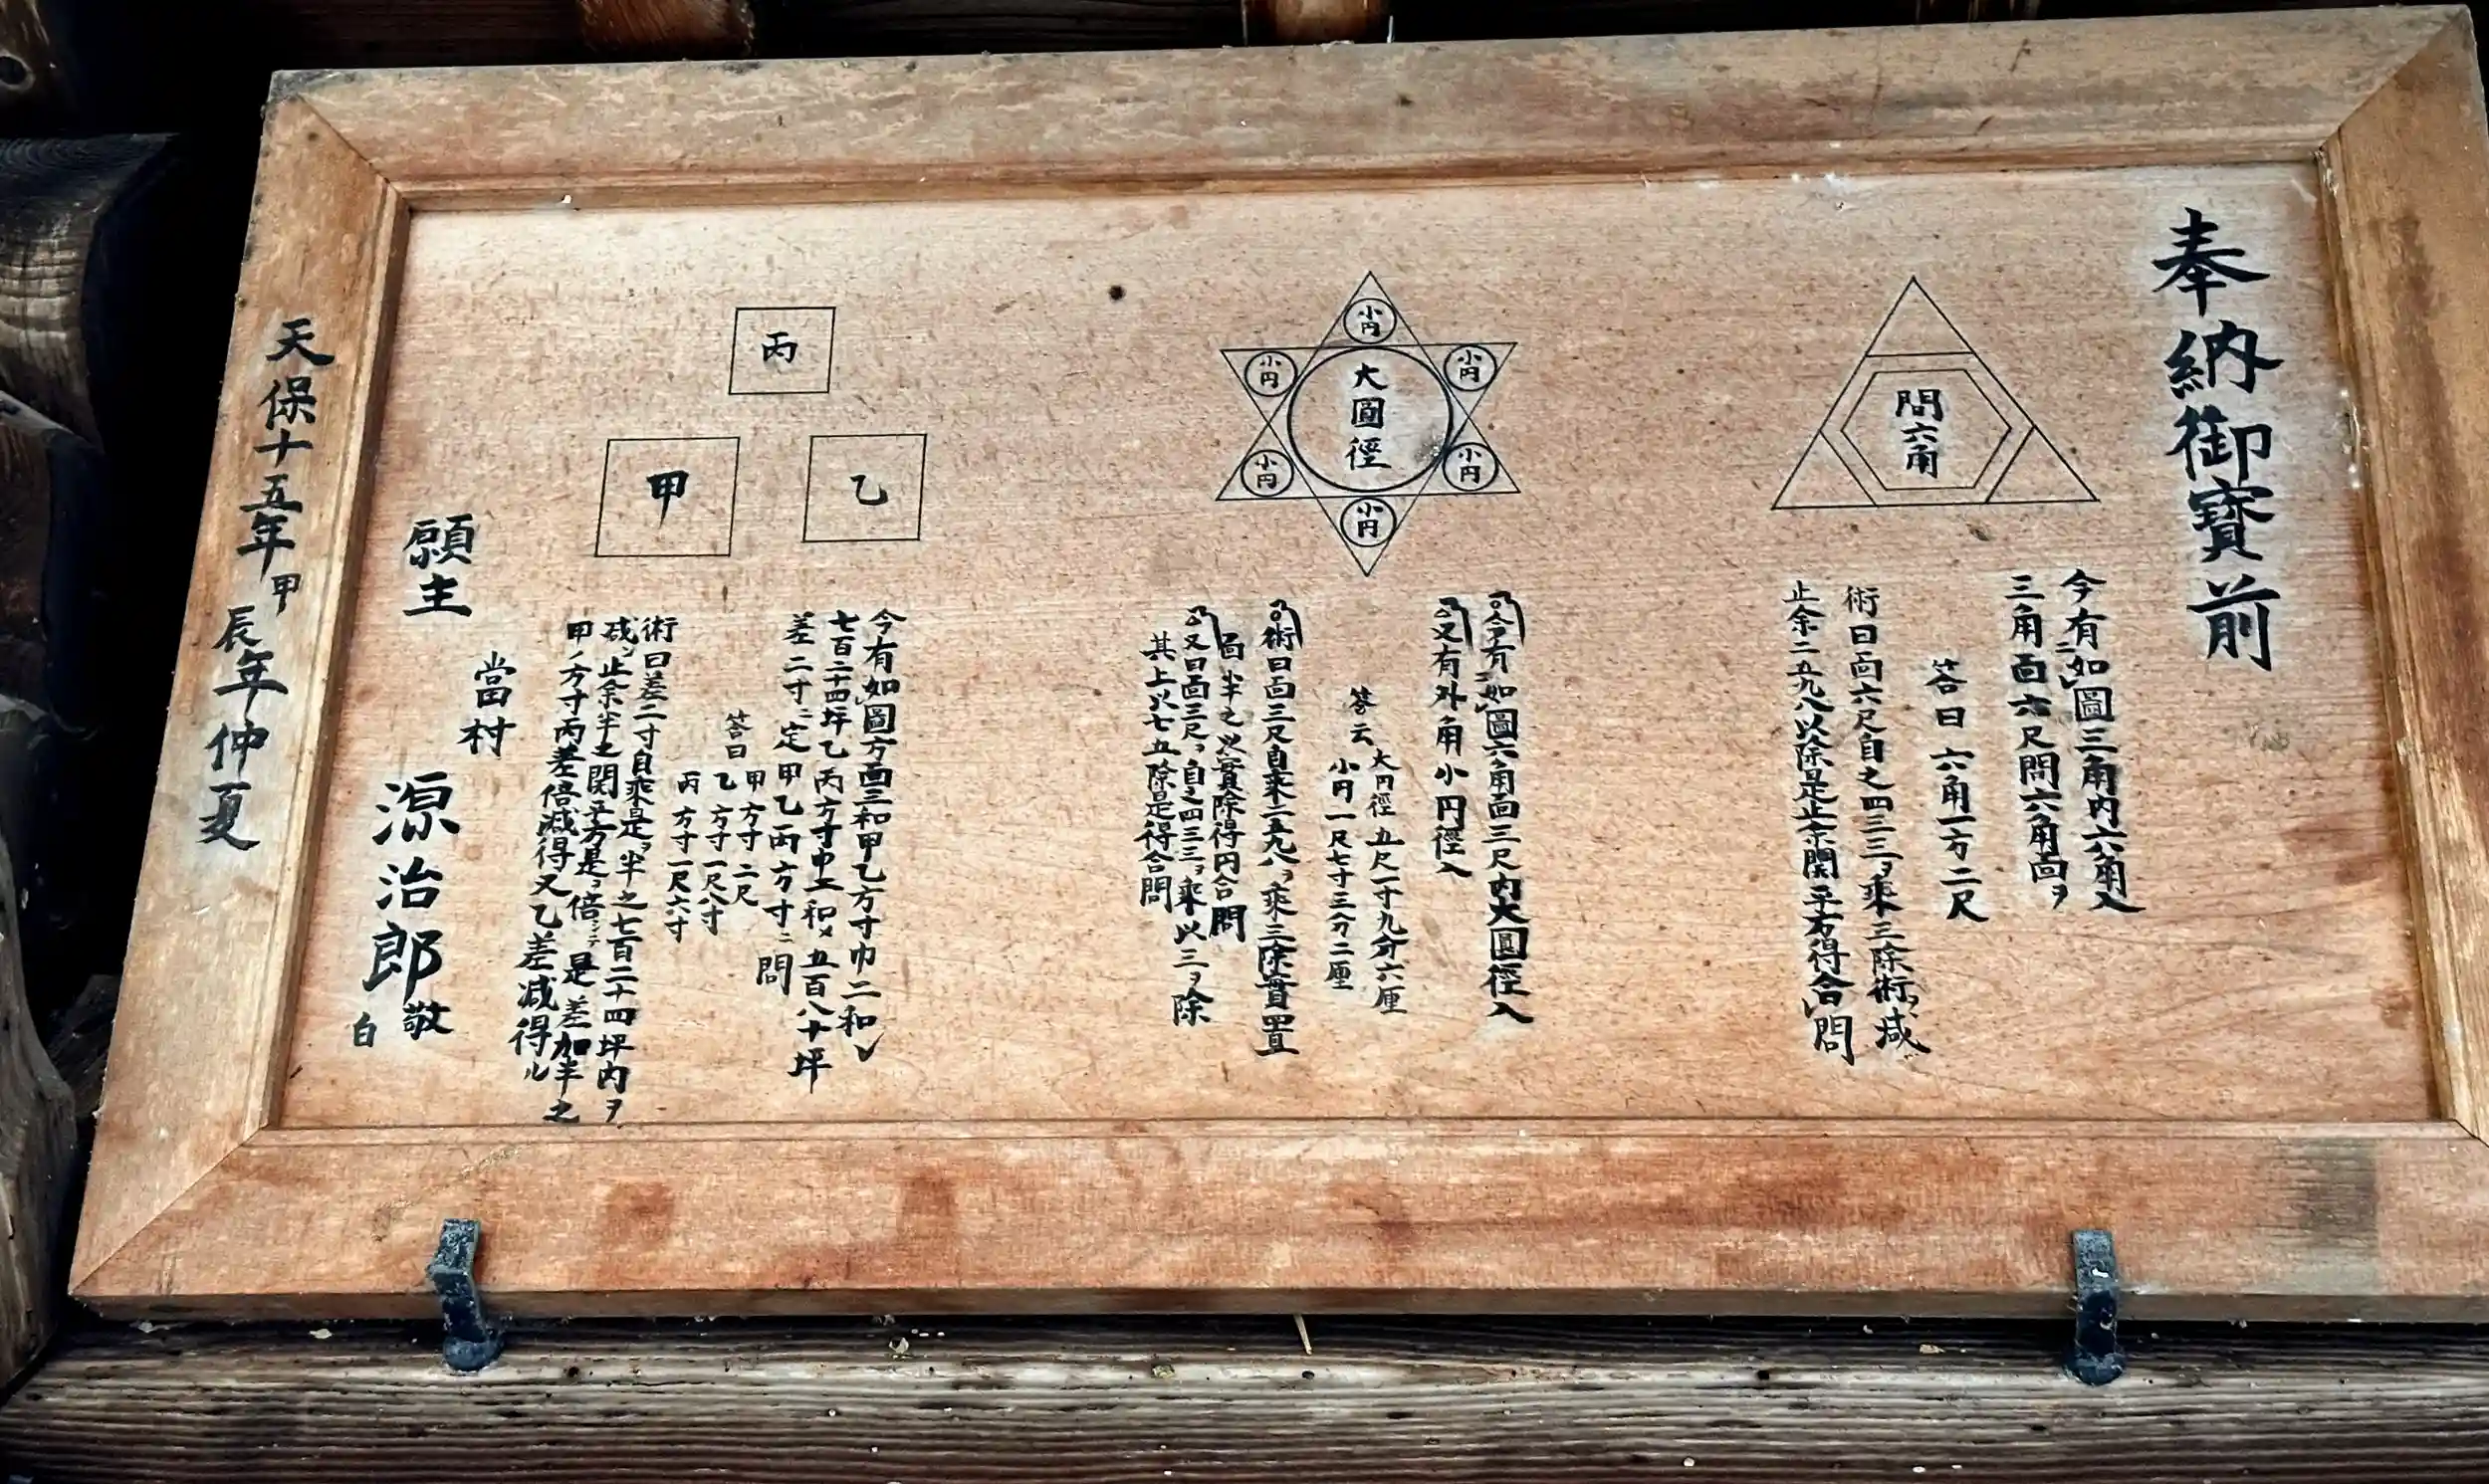 奉納御寳前
問六角
今有如圖三角内六角入
三角面六尺問六角面ヲ
答曰 六角一方二尺
術曰面六尺自之四三三ヲ乘三除術ヲ减
止余二五九八以除是止余開平方得合問
小円
小円
小円
大圓徑
小円
小円
小円
今有如圖六角面三尺内大圓徑入
又有外角小円徑入
答云 大円徑五尺一寸九分六厘
小円一尺七寸三分二厘
術曰面三尺自乘二五九八ヲ乘三除實置
面半之以實除得円合問
又曰面三尺ヲ自之四三三ヲ乘以三ヲ除
其上以七五除是得合問
丙
甲
乙
今有如圖方面三和甲乙方寸巾二和
七百二十四坪乙丙方寸巾二和〆五百八十坪
差二寸ニ定甲乙丙方寸ニ問
答曰 甲方寸二尺
乙方寸一尺八寸
丙方寸一尺六寸
術曰差二寸自乘是ヲ半之七百二十四坪内ヲ
减止余半之開平方是ヲ倍シテ是差加半之
甲ノ方寸丙差倍减得又乙差减得ル
願主
當村
源治郎敬
白
天保十五年甲辰年仲夏